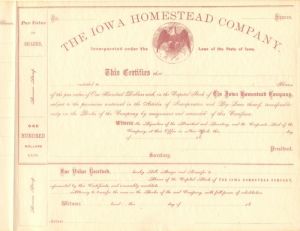 No.
Shares.
THE IOWA HOMESTEAD COMPANY.
Incorporated under the Laws of the State of Iowa.
This Certifies that
is entitled to Shares
of the par value of One Hundred Dollars each, in the Capital Stock of The Iowa Homestead Company,
subject to the provisions contained in the Articles of Incorporation and By Laws thereof, transferable
only on the Books of the Company by assignment and surrender of this Certificate.
Witness the Signatures of the President and Secretary, and the Corporate Seal of the
Company, at this Office in New York, this day of 18
President.
Secretary.
Par Value
ONE
HUNDRED
DOLLARS
EACH.
For Value Received, hereby Sell, Assign and Transfer to
Shares of the Capital Stock of THE IOWA HOMESTEAD COMPANY,
represented by this Certificate, and irrevocably constitute
Attorney to transfer the same on the Books of the said Company, with full power of substitution.
Witness hand this day of 18